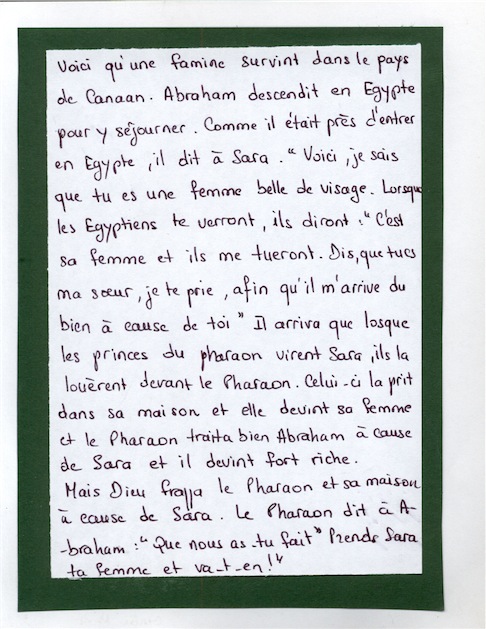 Voici qu'une famine survint dans le pays
de Canaan. Abraham descendit en Egypte
pour y séjourner. Comme il était près d'entrer
en Egypte, il dit à Sara. "Voici, je sais
que tu es une femme belle de visage. Lorsque
les Egyptiens te verront, ils diront : "C'est
sa femme et ils me tueront. Dis, que tu es
ma sœur, je te prie, afin qu'il m'arrive du
bien à cause de toi" Il arriva que losque
les princes du pharaon virent Sara, ils la
louèrent devant le Pharaon. Celui-ci la prit
dans sa maison et elle devint sa femme
et le Pharaon traita bien Abraham à cause
de Sara et il devint fort riche.
Mais Dieu frappa le Pharaon et sa maison
à cause de Sara. Le Pharaon dit à A-
-braham : "Que nous as-tu fait" Prends Sara
ta femme et va-t-en!"